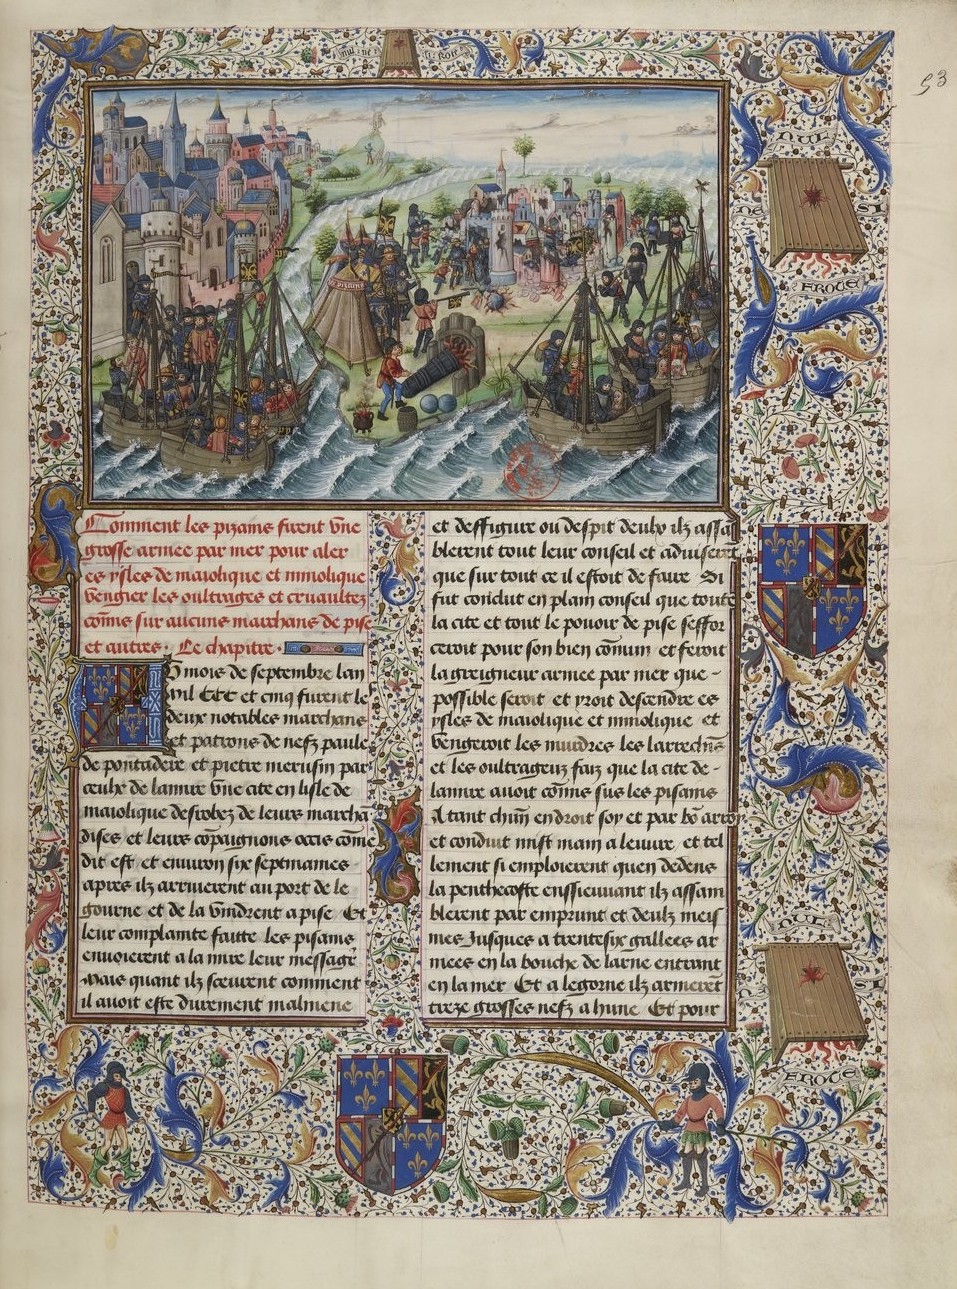 53
nul ne si frote
le pizains
Comment les pizains firent vne
grosse armee par mer pour aler
es ysles de maiolique et minolique
vengier les oultrages et cruaultez
cōms sur aucuns marchans de pise
et autres. Le chapitre.
mois de septembre lan
mil CCC et cinq furent le
deux notables marchans
et patrons de nefz paule
de pontadere et pietre merusin par
ceulx de lamure vne cite en lisle de
maiolique desrobez de leurs marchā
dises et leurs cōpaignons occis cōme
dit est et enuiron six septmaines
apres ilz arriuerent au port de le
gourne et de la vindrent a pise Et
leur complainte faitte les pisains
enuoierent a la mure leur messagr
Mais quant ilz sceurent comment
il auoit este durement malmene
et deffigure ou despit deulx ilz assā
blerent tout leur conseil et aduiserēt
que sur tout ce il estoit de faire Si
fut conclut en plain conseil que toute
la cite et tout le pouoir de pise seffor
ceroit pour son bien cōmun et feroit
la greigneur armee par mer que
possible seroit et yroit descendre es
ysles de maiolique et minolique et
vengeroit les murdres les larrechīs
et les oultrageux faiz que la cite de
lamure auoit cōms sus les pisains
A tant chūn endroit soy et par bō arroy
et conduit mist main a leuure et tel
lement si emploierent quen dedens
la penthecoste enssieuuant ilz assam
blerent par emprunt et deulx meis
mes Jusques a trentesix gallees ar
mees en la bouche de larne entrant
en la mer Et a legorne ilz armerēt
treze grosses nefz a hune Et pour
NUL
NE SI
FROTE
NUL
NE SI
FROTE